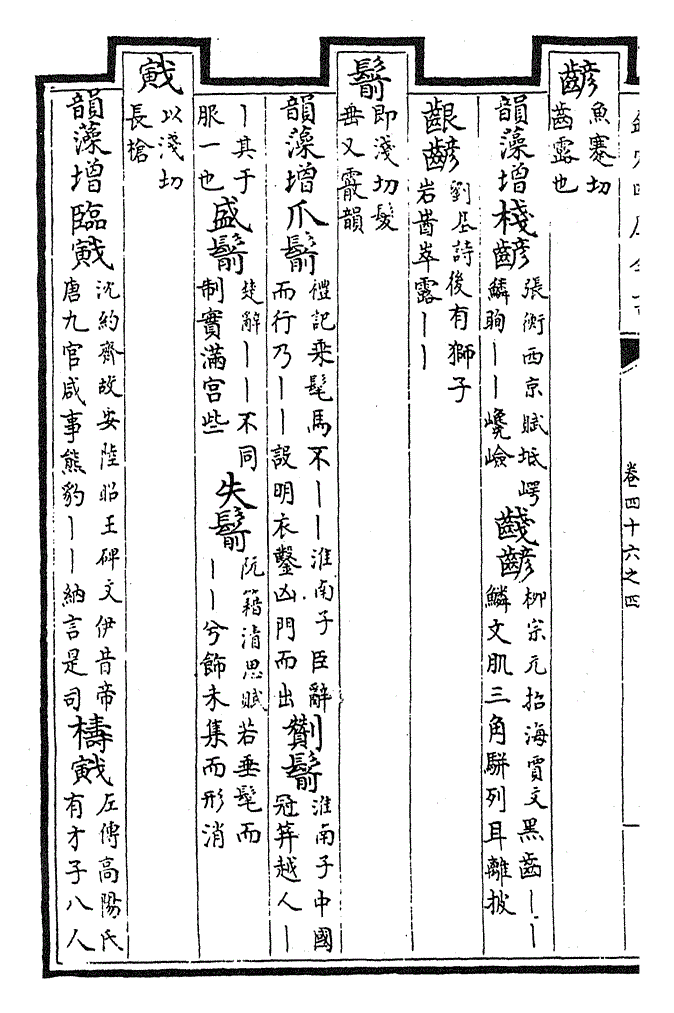 卷四十六之四
齴
魚蹇切
齒露也
韻藻增
棧齴
張衡西京賦坻崿
鱗眴——巉嶮
齴
柳宗元招海賈文黑齒——
鱗文肌三角駢列耳離披
齦齴
劉基詩後有獅子
岩崒露——
鬋
即淺切髮
垂又霰韻
韻藻增
爪鬋
禮記乘髦馬不——淮南子臣辭
而行乃——設明衣鑿凶門而出
劗鬋
淮南子中國
冠笄越人—
—其于
服一也
盛鬋
楚辭——不同
制實滿宮些
失鬋
阮籍清思賦若垂髦而
——兮飾未集而形消
戭
以淺切
長槍
韻藻增
臨戭
沈約齊故安陸昭王碑文伊昔帝
唐九官咸事熊豹——納言是司
檮戭
左傳高陽氏
有才子八人